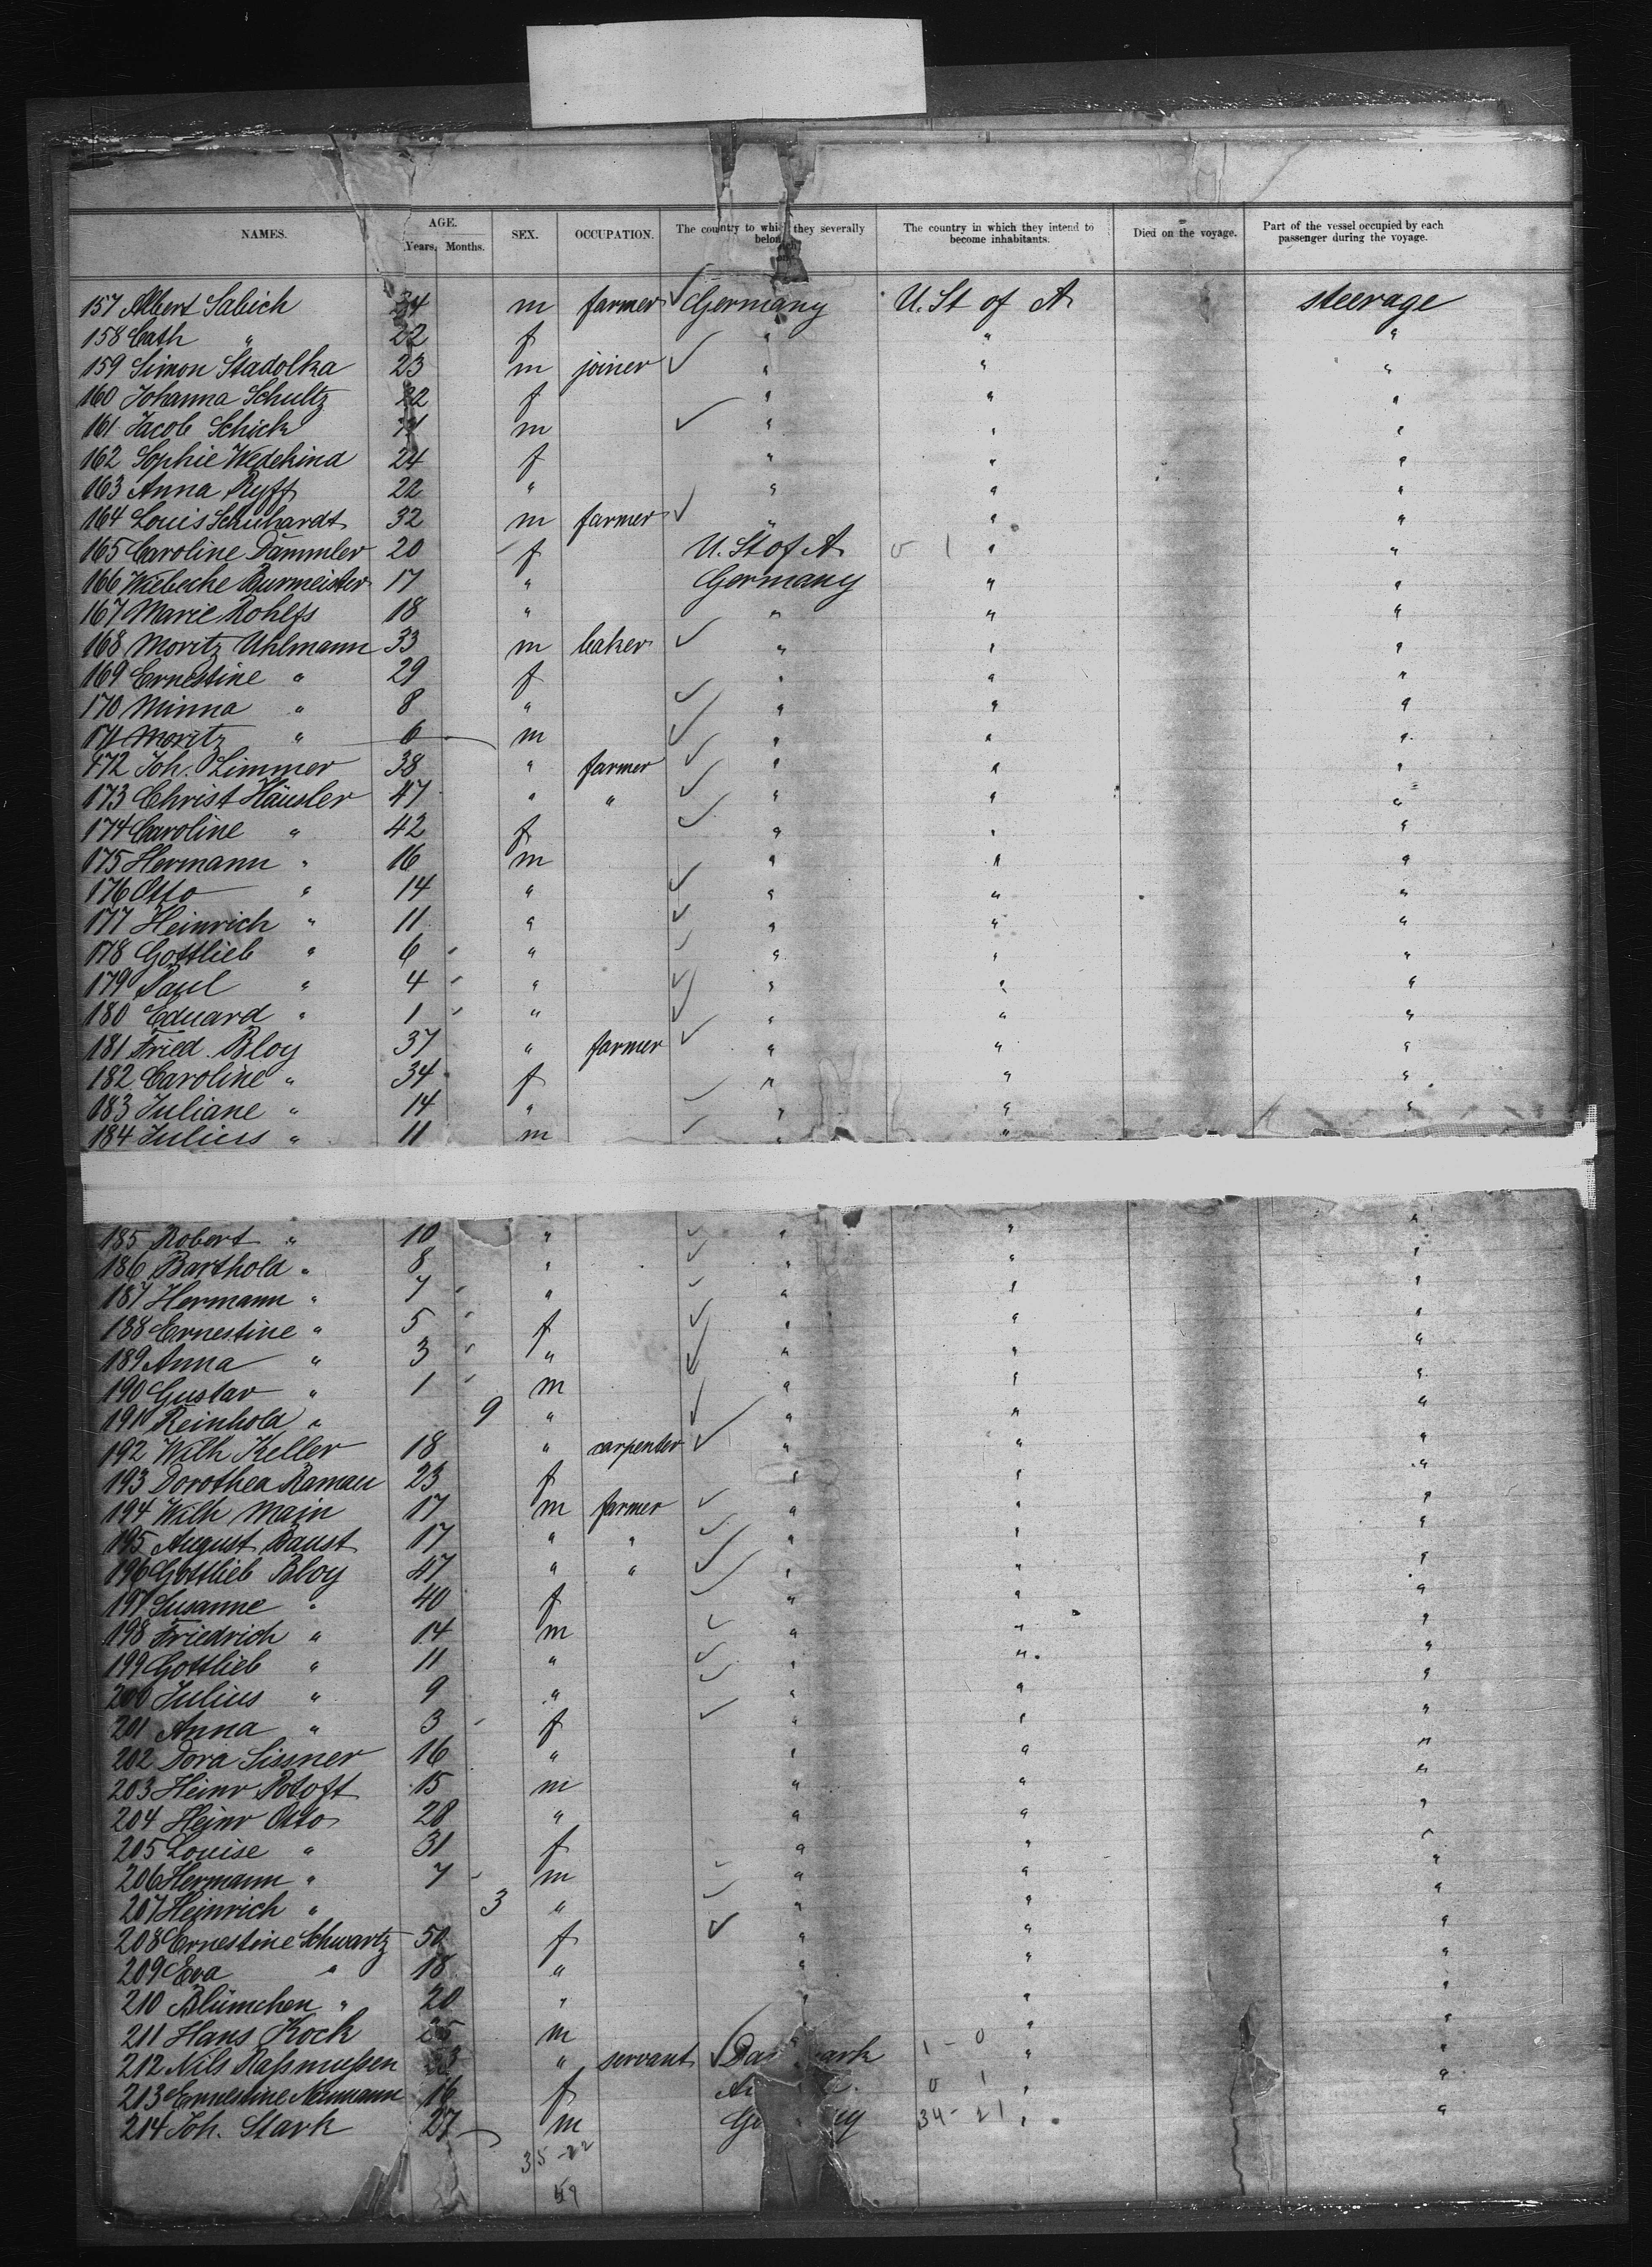 NAMES. AGE. Years. Months. SEX. OCCUPATION. The country to which they severally belong. The country in which they intend to become inhabitants. Died on the voyage. Part of the vessel occupied by each passenger during the voyage.
157 Albert Sabich 34 m farmer Germany U. St of A. steerage
158 Cath " 22 f " " "
159 Simon Stadolka 23 m joiner " " "
160 Johanna Schultz 22 f " " "
161 Jacob Schick m " " "
162 Sophie Wedekind 24 f " " "
163 Anna Ryff 22 " " " "
164 Louis Schuhardt 32 m farmer " " "
165 Caroline Dämmler 20 f U. St of A. 0 1 " "
166 Wiebecke Burmeister 17 " Germany " "
167 Marie Rohlfs 18 " " " "
168 Moritz Uhlmann 33 m baker " " "
169 Ernestine " 29 f " " "
170 Minna " 8 " " " "
171 Moritz " 6 m " " "
172 Joh. Limmer 38 " farmer " " "
173 Christ Häusler 47 " " " " "
174 Caroline " 42 f " " "
175 Hermann " 16 m " " "
176 Otto " 14 " " " "
177 Heinrich " 11 " " " "
178 Gottlieb " 6 " " " "
179 Paul " 4 " " " "
180 Eduard " 1 " " " "
181 Fried. Bloy 37 " farmer " " "
182 Caroline " 34 f " " "
183 Juliane " 14 " " " "
184 Julius " 11 m " "
185 Robert " 10 " " " "
186 Barthold " 8 " " " "
187 Hermann " 7 " " " "
188 Ernestine " 5 f " " "
189 Anna " 3 " " " "
190 Gustav " 1 m " " "
191 Reinhold " 9 " " " "
192 Wilh Keller 18 " carpenter " " "
193 Dorothea Ramau 23 f " " "
194 Wilh Main 17 m farmer " " "
195 August Baust 17 " " " " "
196 Gottlieb Bloy 47 " " " " "
197 Susanne " 40 f " " "
198 Friedrich " 14 m " " "
199 Gottlieb " 11 " " " "
200 Julius " 9 " " " "
201 Anna " 3 f " " "
202 Dora Sissner 16 " " " "
203 Heinr 15 m " " "
204 Heinr Otto 28 " " " "
205 Louise " 31 f " " "
206 Hermann " 7 m " " "
207 Heinrich " 3 " " " "
208 Ernestine Schwartz 50 f " " "
209 Eva " 18 " " " "
210 Blümchen " 20 " " " "
211 Hans Kock 25 m " "
212 Nils Raßmußen 23 " servant 1 - 0 " "
213 Ernestine Neumann 16 f 0 1 " "
214 Joh. Stark 27 m 34 - 21 " "
35 - 22
59